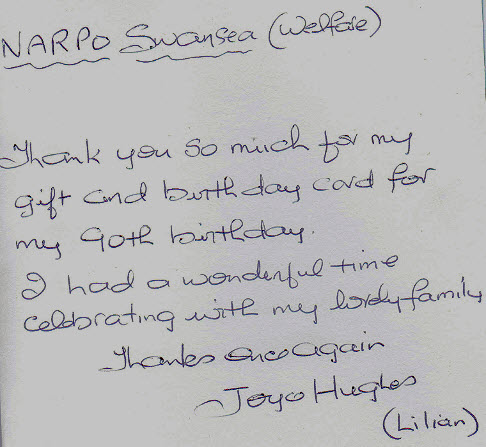 NARPO Swansea (Welfare)
Thank you so much for my
gift and birthday card for
my 90th birthday.
I had a wonderful time
celebrating with my lovely family
Thanks once again
Joyce Hughes
(Lilian)